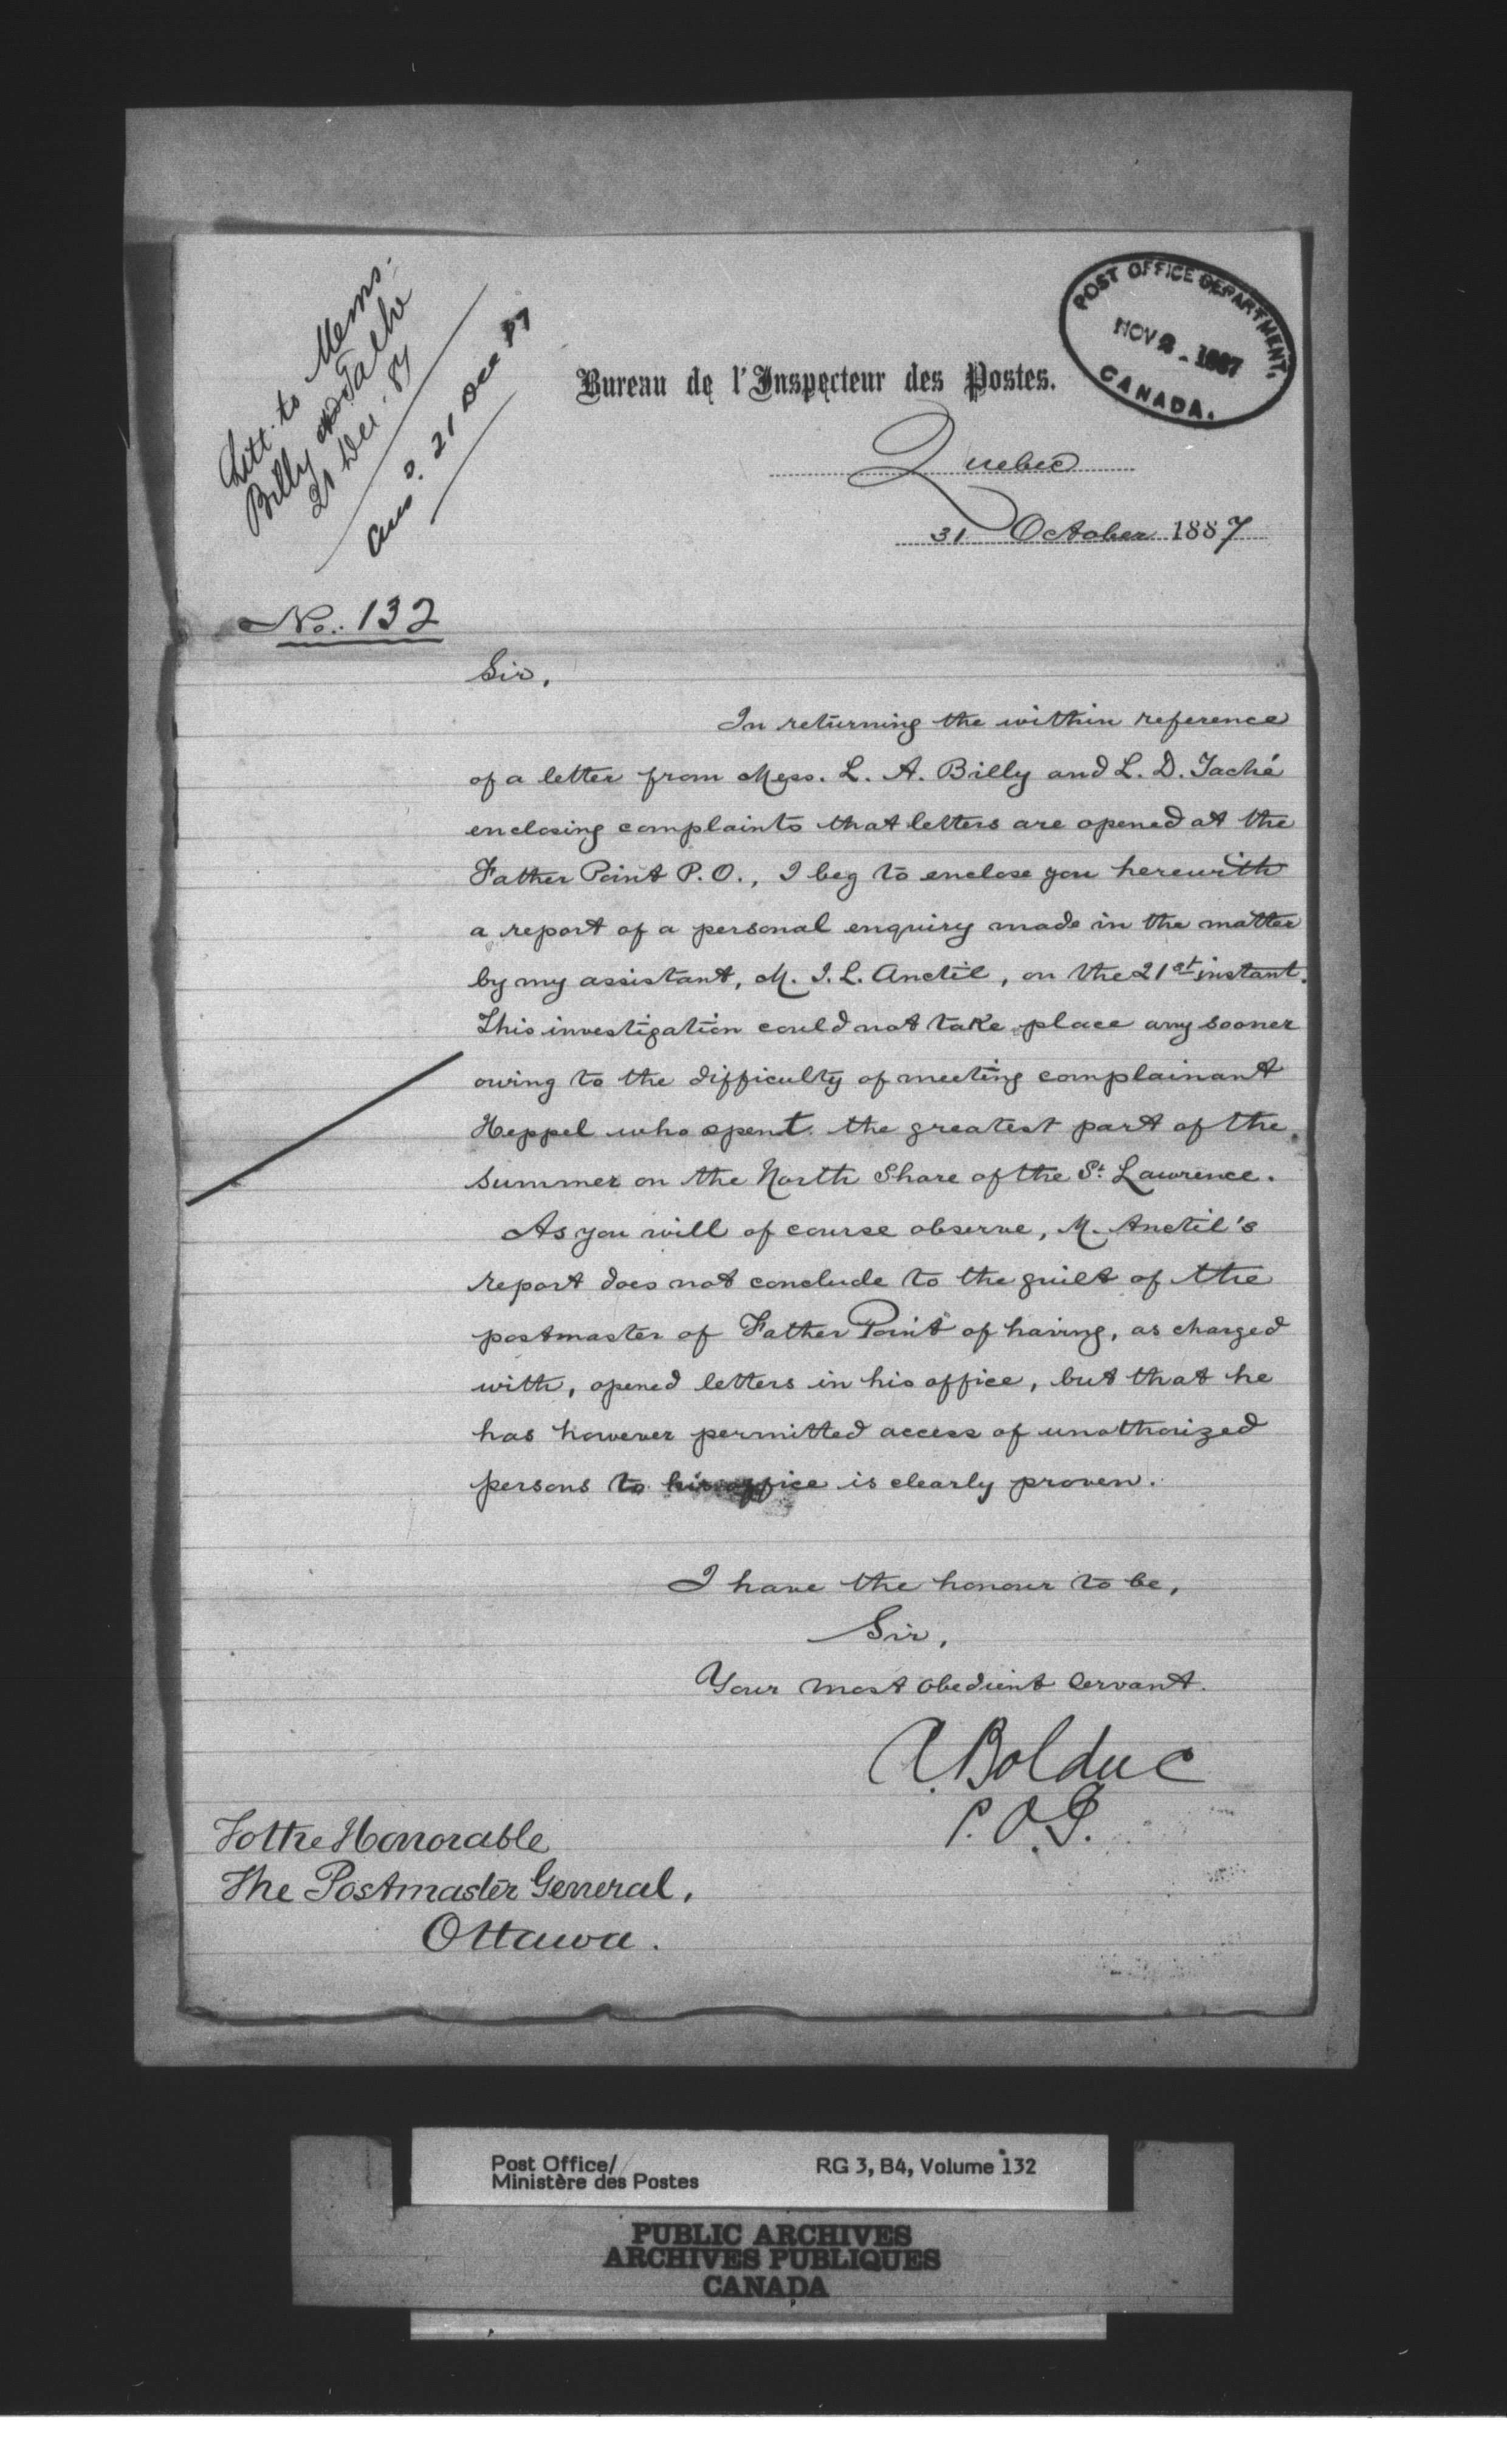 Lett. to Messrs.
Billy and Taché
21 Dec. 87
Ans'd. 21 Dec 87
POST OFFICE DEPARTMENT,
NOV 2 - 1887
CANADA.
Bureau de l'Inspecteur des Postes.
Quebec
31 October 1887
No. 132
Sir,
In returning the within reference
of a letter from Mess. L. A. Billy and L. D. Taché
enclosing complaints that letters are opened at the
Father Point P.O., I beg to enclose you herewith
a report of a personal enquiry made in the matter
by my assistant, M. J. L. Anctil, on the 21st instant.
This investigation could not take place any sooner
owing to the difficulty of meeting complainant
Heppel who spent the greatest part of the
summer on the North Shore of the St. Lawrence.
As you will of course observe, M. Anctil's
report does not conclude to the guilt of the
postmaster of Father Point of having, as charged
with, opened letters in his office, but that he
has however permitted access of unathorized
persons to his office is clearly proven.
I have the honour to be,
Sir,
Your most obedient servant.
A. Bolduc
P.O.I.
To the Honorable
The Postmaster General,
Ottawa.
Post Office/
Ministère des Postes
RG 3, B4, Volume 132
PUBLIC ARCHIVES
ARCHIVES PUBLIQUES
CANADA